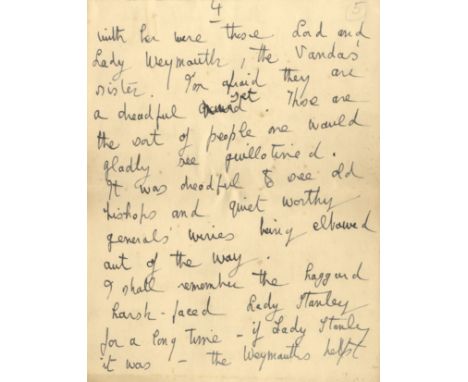 4
5
with her were those Lord and
Lady Weymouth, the Vanda's
sister. I'm afraid they are
a dreadful set. Those are
the sort of people one would
gladly see guillotined.
It was dreadful to see old
bishops and quiet worthy
generals wives being elbowed
out of the way.
I shall remember the haggard
harsh-faced Lady Stanley
for a long time - if Lady Stanley
it was - the Weymouths